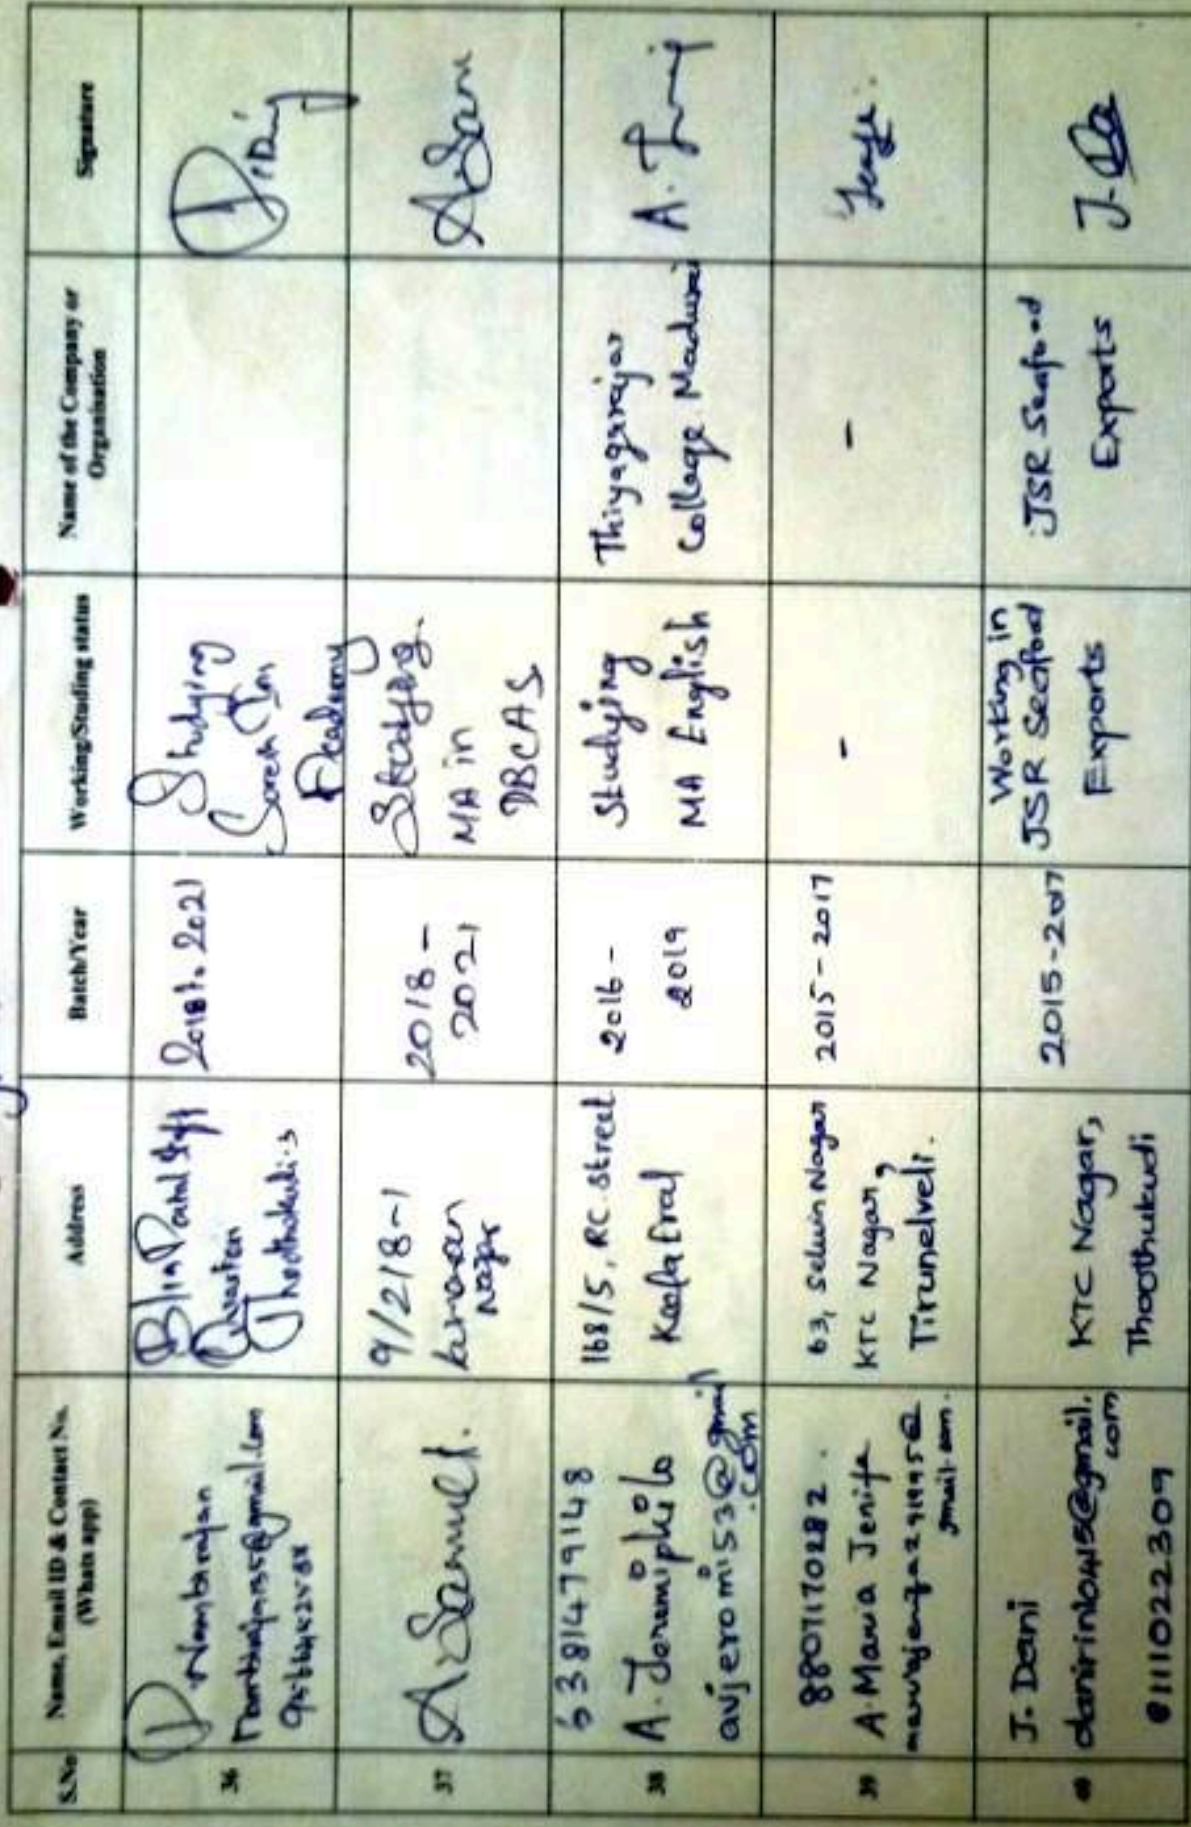 S.No Name, Email ID & Contact No. (Whats app) Address Batch/Year Working/Studing status Name of the Company or Organisation Signature
36
Nambirajan
2018 2021
Studying
Academy
37
A. Samuel.
9/218-1
Nagar
2018 -
2021
Studying.
MA in
DBCAS
38
6381479148
A. Jeromiphilo
avjeromi53@gmail
.com
168/5, RC Street
Keela Eral
2016 -
2019
Studying
MA English
Thiyagarajar
Collage Madurai
39
8807170282.
A. Maria Jenifa
gmail.com.
63, Selwin Nagar
KTC Nagar,
Tirunelveli.
2015 - 2017
-
-
40
J. Dani
danirini0415@gmail.
com
8111022309
KTC Nagar,
Thoothukudi
2015-2017
Working in
JSR Seafood
Exports
JSR Seafood
Exports